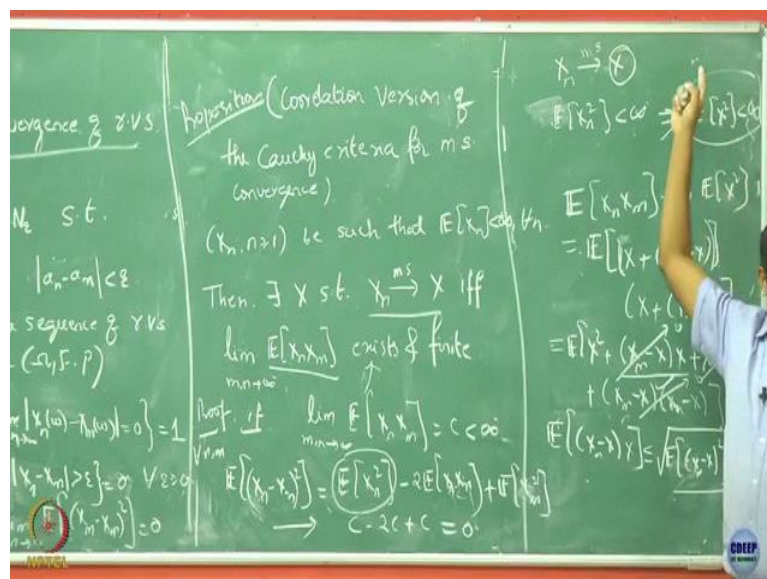 vergence of r.v.s
s.t.
|aₙ-aₘ|<ε
a sequence of r.v.s
(Ω, F, P)
|Xₙ(ω)-Xₘ(ω)|=0}=1
|Xₙ-Xₘ|>ε}=0 ∀ε>0
(Xₘ-Xₙ)²]=0
Proposition (Correlation version of
the Cauchy criteria for m.s
convergence)
(Xₙ, n≥1) be such that E[Xₙ²]<∞, ∀n
Then ∃ X s.t. Xₙ →m.s X iff
lim m,n→∞ E[XₙXₘ] exists & finite
Proof: if lim m,n→∞ E[XₙXₘ]=C<∞
∀n,m
E[(Xₘ-Xₙ)²]=E[Xₙ²]-2E[XₙXₘ]+E[Xₘ²]
→ C-2C+C=0
Xₙ →m.s X
E[Xₙ²]<∞ ⇒ [X²]<∞
E[XₙXₘ] E[X²]
=E[(X+(
(X+(
=E[X²+(Xₘ-X)X+
+(Xₙ-X)(Xₘ-X)]
E[(Xₙ-X)X]≤√E[(Xₙ-X)²
NPTEL
CDEEP
IIT BOMBAY